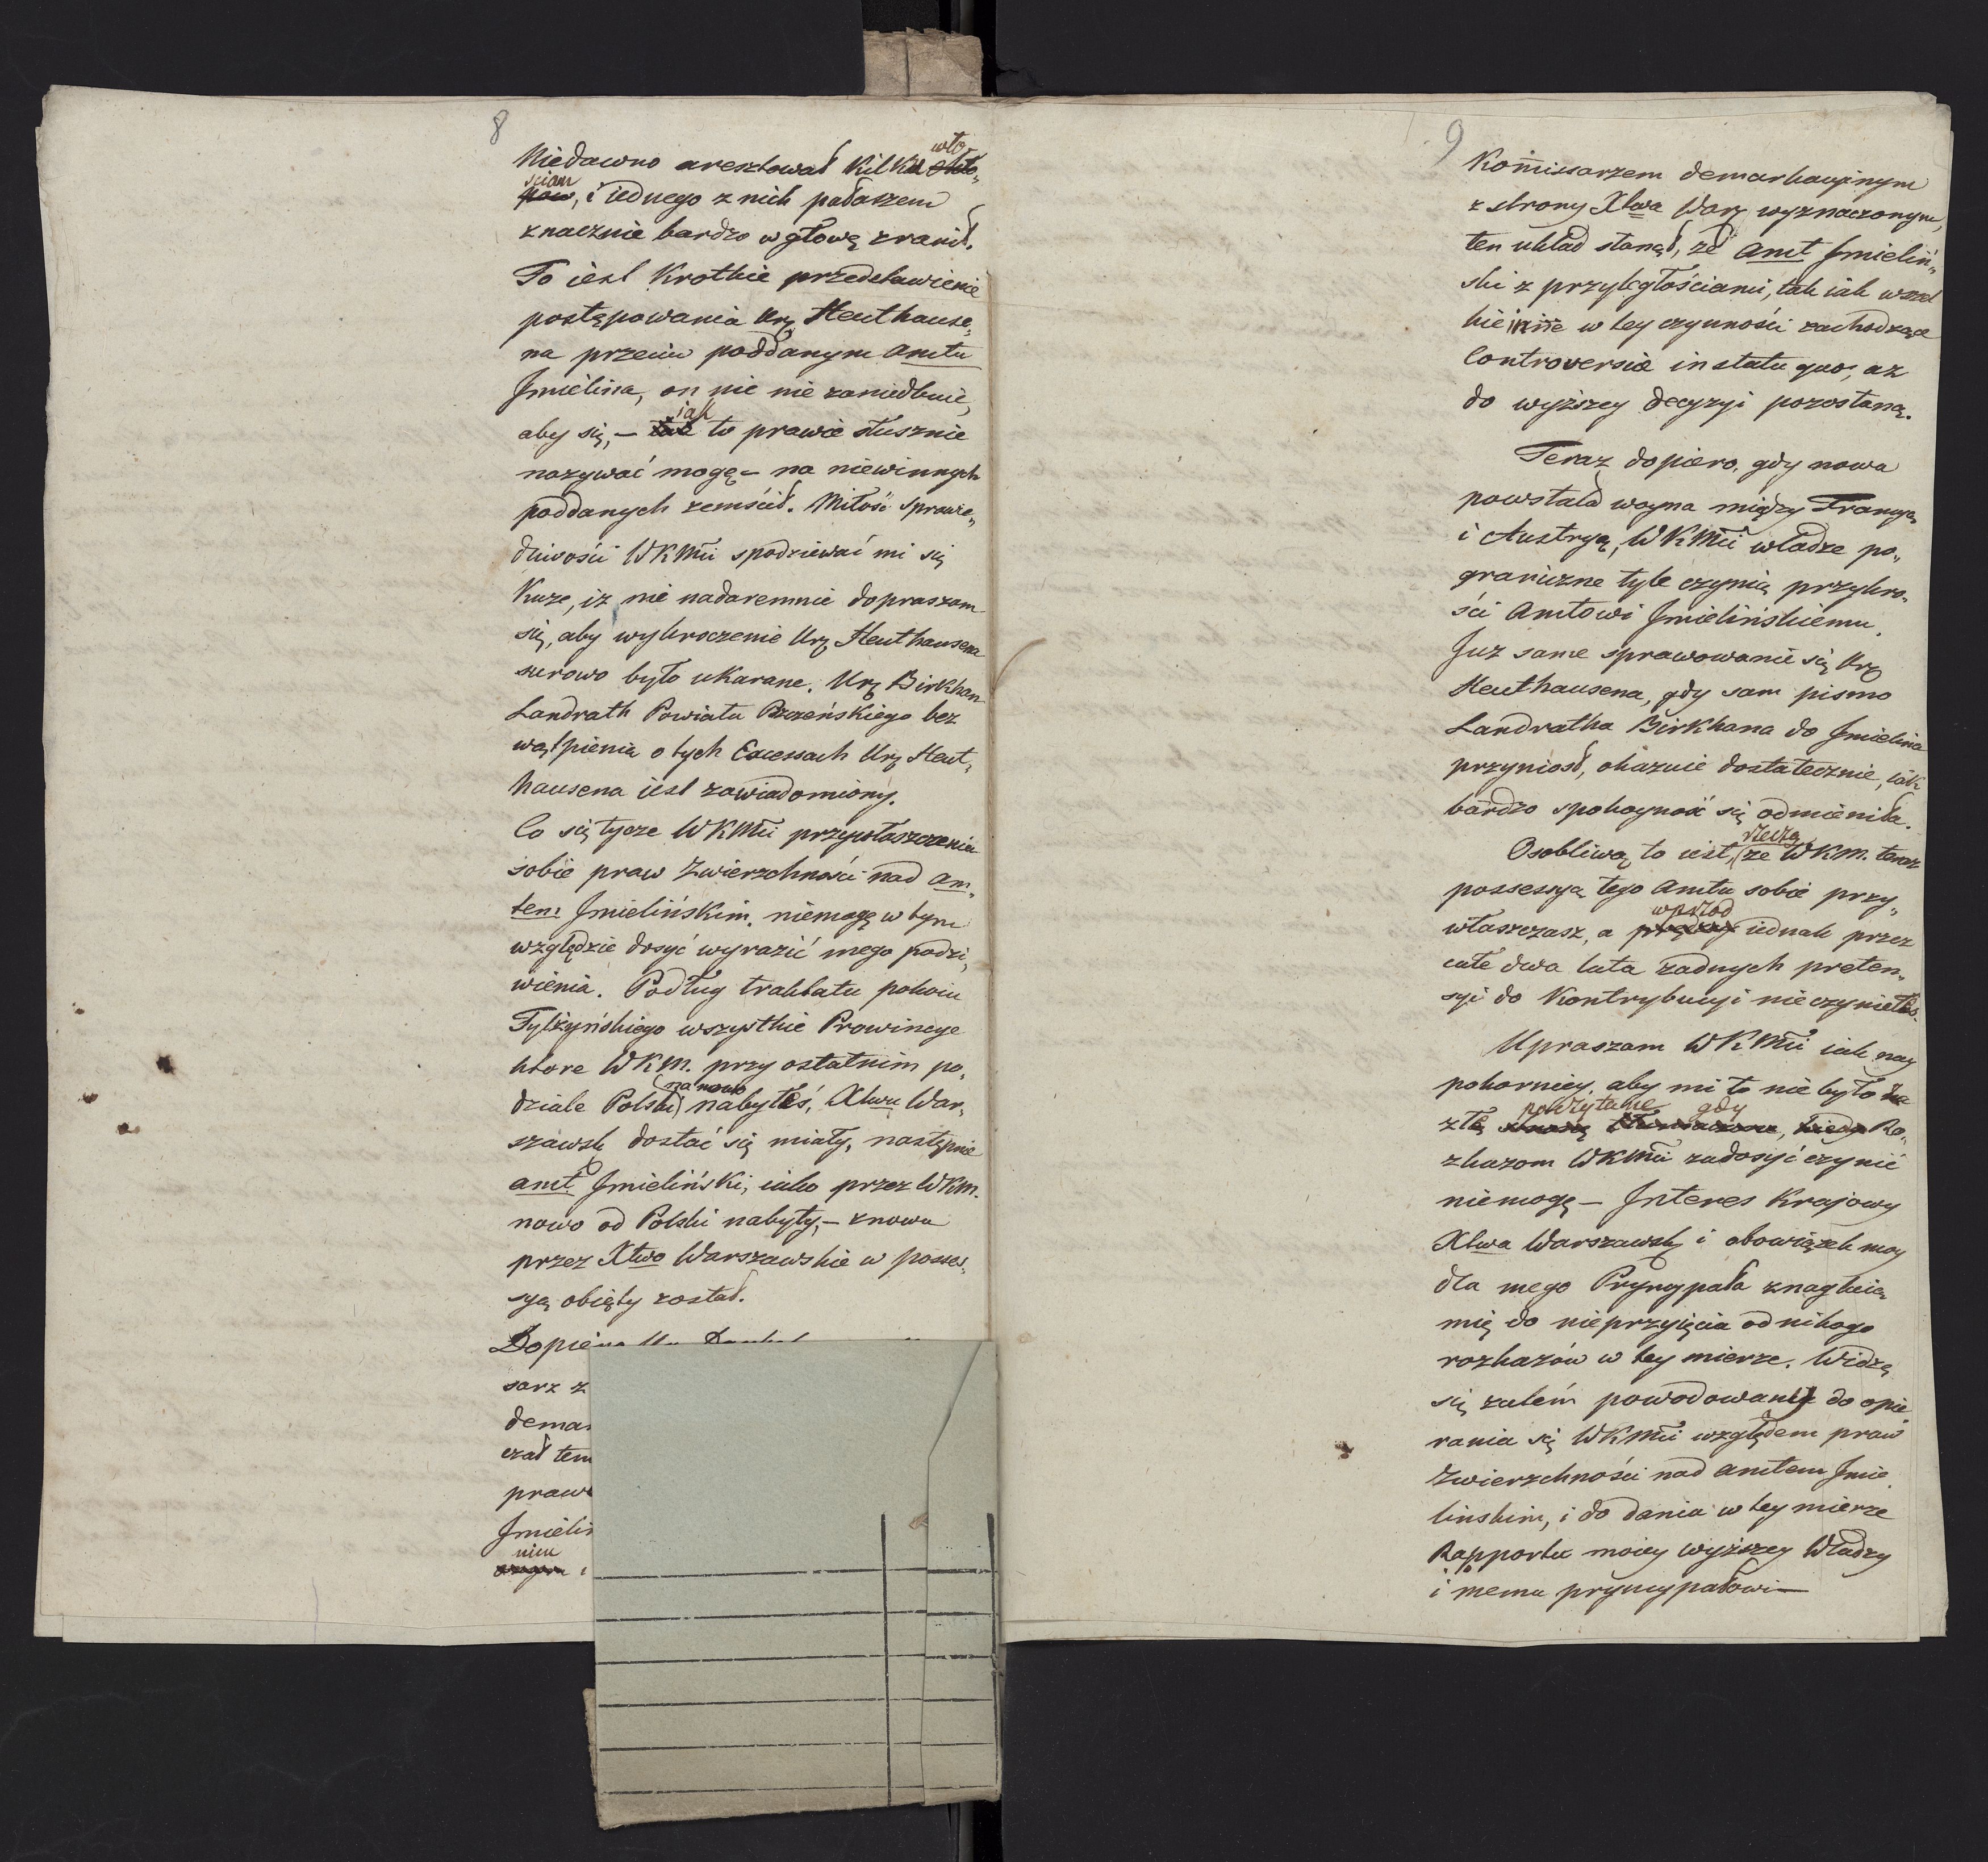 8
Niedawno aresztował Kilku wło-
ścian, i iednego z nich pałaszem
znacznie bardzo w głowę zranił.
To iest Krotkie przedstawienie
postępowania Urz Heuthause-
na przeciw poddanym Amtu
Jmielina, on nic nie zaniedbuie,
aby się, — iak to prawie słusznie
nazywać mogę — na niewinnych
poddanych zemścił. Miłość sprawie-
dliwości WKMci spodziewać mi się
Kaze, iz nie nadaremnie dopraszam
się, aby wykroczenie Urz Heuthausena
surowo było ukarane. Urz Birkhan
Landrath Powiatu Pszczeńskiego bez
wątpienia o tych Excessach Urz Heut-
hausena iest zawiadomiony.
Co się tycze WKMci przywłaszczenia
sobie praw Zwierzchności nad Am-
tem Jmielińskim, niemogę w tym
względzie dosyć wyrazić mego podzi-
wienia. Podług traktatu pokoiu
Tylżyńskiego wszystkie Prowincye
ktore WKM. przy ostatnim po-
dziale Polski na nowo nabyłeś, Xtwu War-
szawsk dostać się miały, następnie
Amt Jmieliński, iako przez WKM.
nowo od Polski nabyty, — znowu
przez Xtwo Warszawskie w posses-
syą obięty został.
Dopiero
sarz z
demar
czał tem
praw
Jmielin
nim
9
Kommissarzem demarkacyinym
z strony Xtwa Warz wyznaczonym,
ten układ stanął, że Amt Jmieliń-
ski z przyległościami, tak iak wszel
kie inne w tey czynności zachodzące
Controversie in statu quo, az
do wyższey decyzyi pozostaną.
Teraz dopiero, gdy nowa
powstała woyna między Francyą
i Austryą, WKMci władze po-
graniczne tyle czynią przykro-
ści Amtowi Jmielińskiemu.
Juz same sprawowanie się Urz
Heuthausena, gdy sam pismo
Landratha Birkhana do Jmielina
przyniosł, okazuie dostatecznie, iak
bardzo spokoyność się odmieniła.
Osobliwą to iest rzeczą, ze WKM. teraz
possessyą tego Amtu sobie przy-
właszczasz, a wprzod iednak przez
całe dwa lata żadnych preten-
syi do Kontrybucyi nie czyniłeś.
Upraszam WKMci iak nay
pokorniey, aby mi to nie było za
złe poczytane, gdy Ro-
zkazom WKMci zadosyć czynić
niemogę — Jnteres Krajowy
Xtwa Warszawsk i obowiązek moy
dla mego Pryncypała znagleią
mię do nieprzyięcia od nikogo
rozkazów w tey mierze. Widzę
się zatém powodowany do opie
rania się WKMci względem praw
Zwierzchności nad Amtem Jmie
linskim, i do dania w tey mierze
Rapportu moiey wyższey Władzy
i memu pryncypałowi —